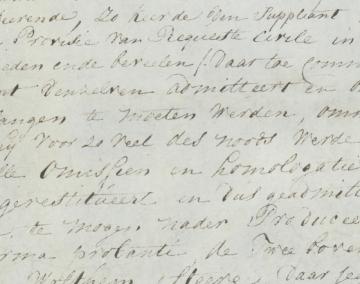 eerende, zo keerde den Suppliant
Provisie van Requeste Civile in
eeden ende beveelen / Daar toe comm
nt Denzelven admitteert en o
langen te moeten werden, omm
hy voor zo veel des noods werde
lle omissien en homologatie
gerestitueert en dus geadmit
te mogen nader Produceer
orma probanti de Twee bove
daar